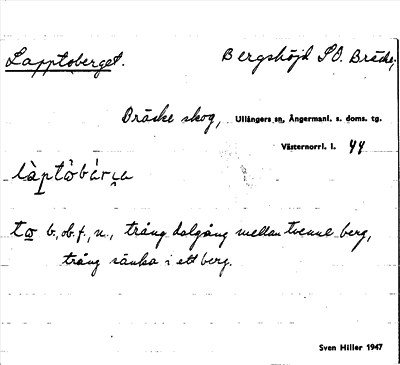 Lapptoberget. Bergshöjd SO. Bräcke,
Bräcke skog, Ullångers sn, Ångermanl. s. doms. tg.
Västernorrl. l. 44
làptὼbárɩa
tω b., ob. f., n., trång dalgång mellan tvenne berg,
trång sänka i ett berg.
Sven Hiller 1947